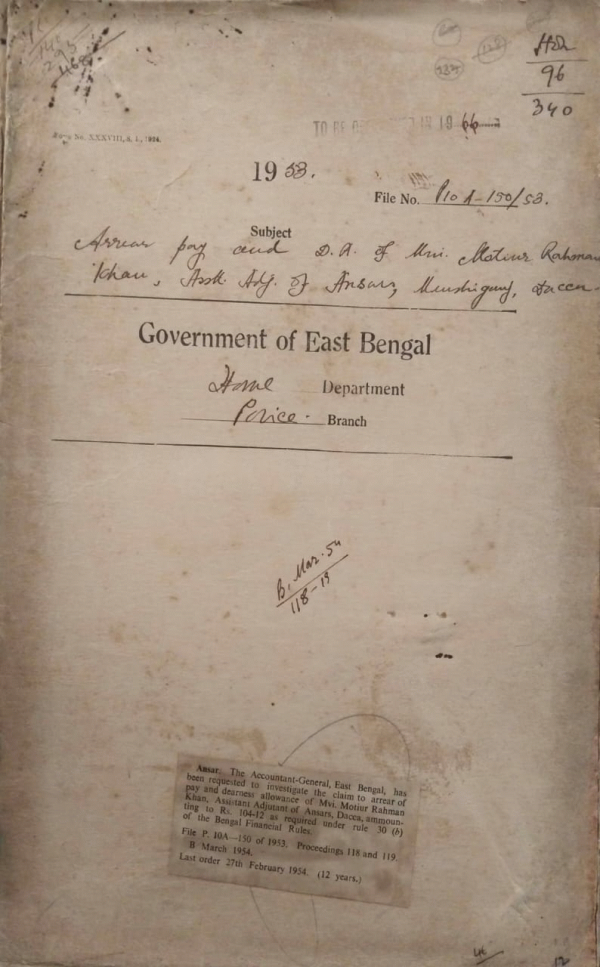 Hoh
96
340
TO BE DESTROYED IN 1966
Form No. XXXVIII, s. 1, 1924.
1953.
File No. P10A-150/53.
Subject
Arrear pay and D.A. of Mvi. Motiur Rahman
Khan, Asstt. Adj. of Ansars, Munshiganj, Dacca.
Government of East Bengal
Home Department
Police. Branch
B, Mar. 54
118-19
Ansar: The Accountant-General, East Bengal, has
been requested to investigate the claim to arrear of
pay and dearness allowance of Mvi. Motiur Rahman
Khan, Assistant Adjutant of Ansars, Dacca, amoun-
ting to Rs. 104-12 as required under rule 30 (b)
of the Bengal Financial Rules.
File P. 10A—150 of 1953. Proceedings 118 and 119.
B March 1954.
Last order 27th February 1954. (12 years.)